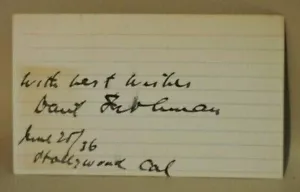 With best wishes
Danl Frohman
June 25/36
Hollywood Cal